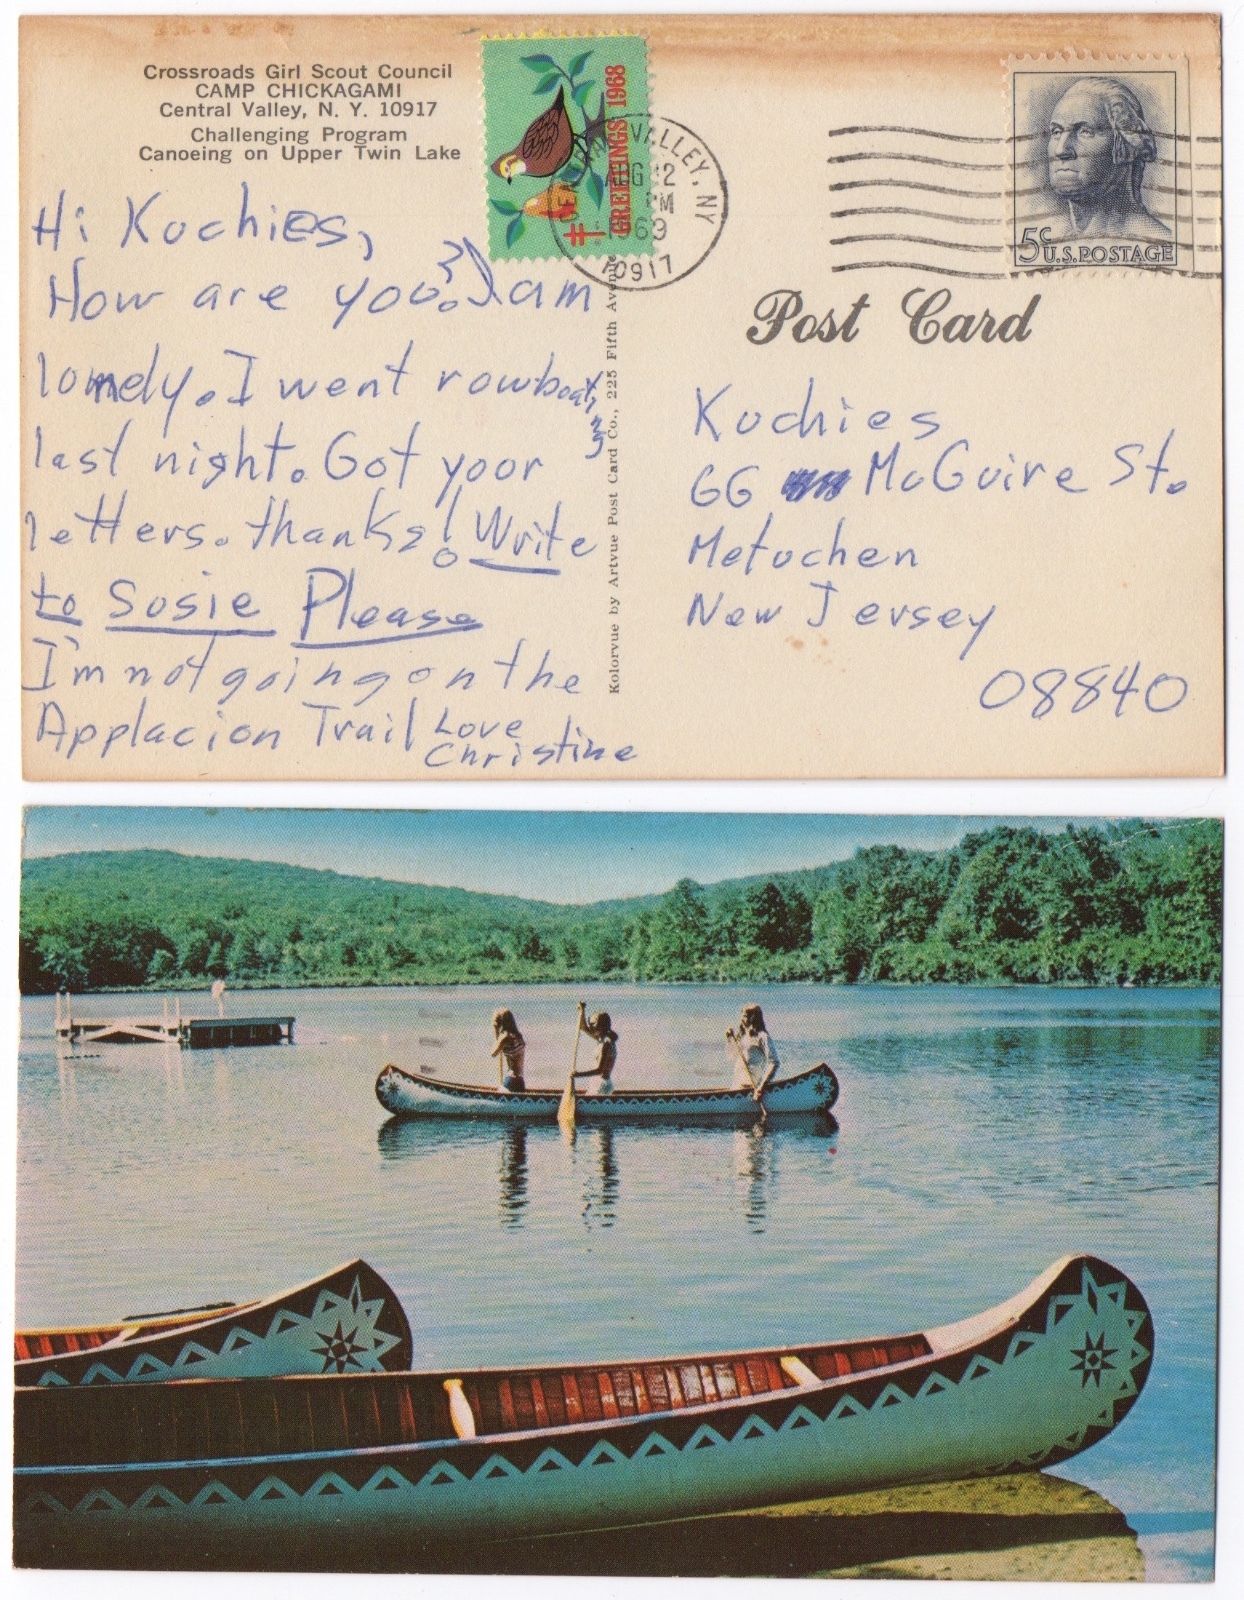 Crossroads Girl Scout Council
CAMP CHICKAGAMI
Central Valley, N. Y. 10917
Challenging Program
Canoeing on Upper Twin Lake
GREETINGS 1968
VALLEY, NY
AUG 12
PM
1969
10917
5c
U.S. POSTAGE
Post Card
Hi Kuchies,
How are you? I am
lonely. I went rowboating
last night. Got yoor
letters. thanks! Write
to Susie Please
I'm not going on the
Applacion Trail Love
Christine
Kolorvue by Artvue Post Card Co., 225 Fifth Avenue
Kuchies
66 McGuire St.
Metuchen
New Jersey
08840